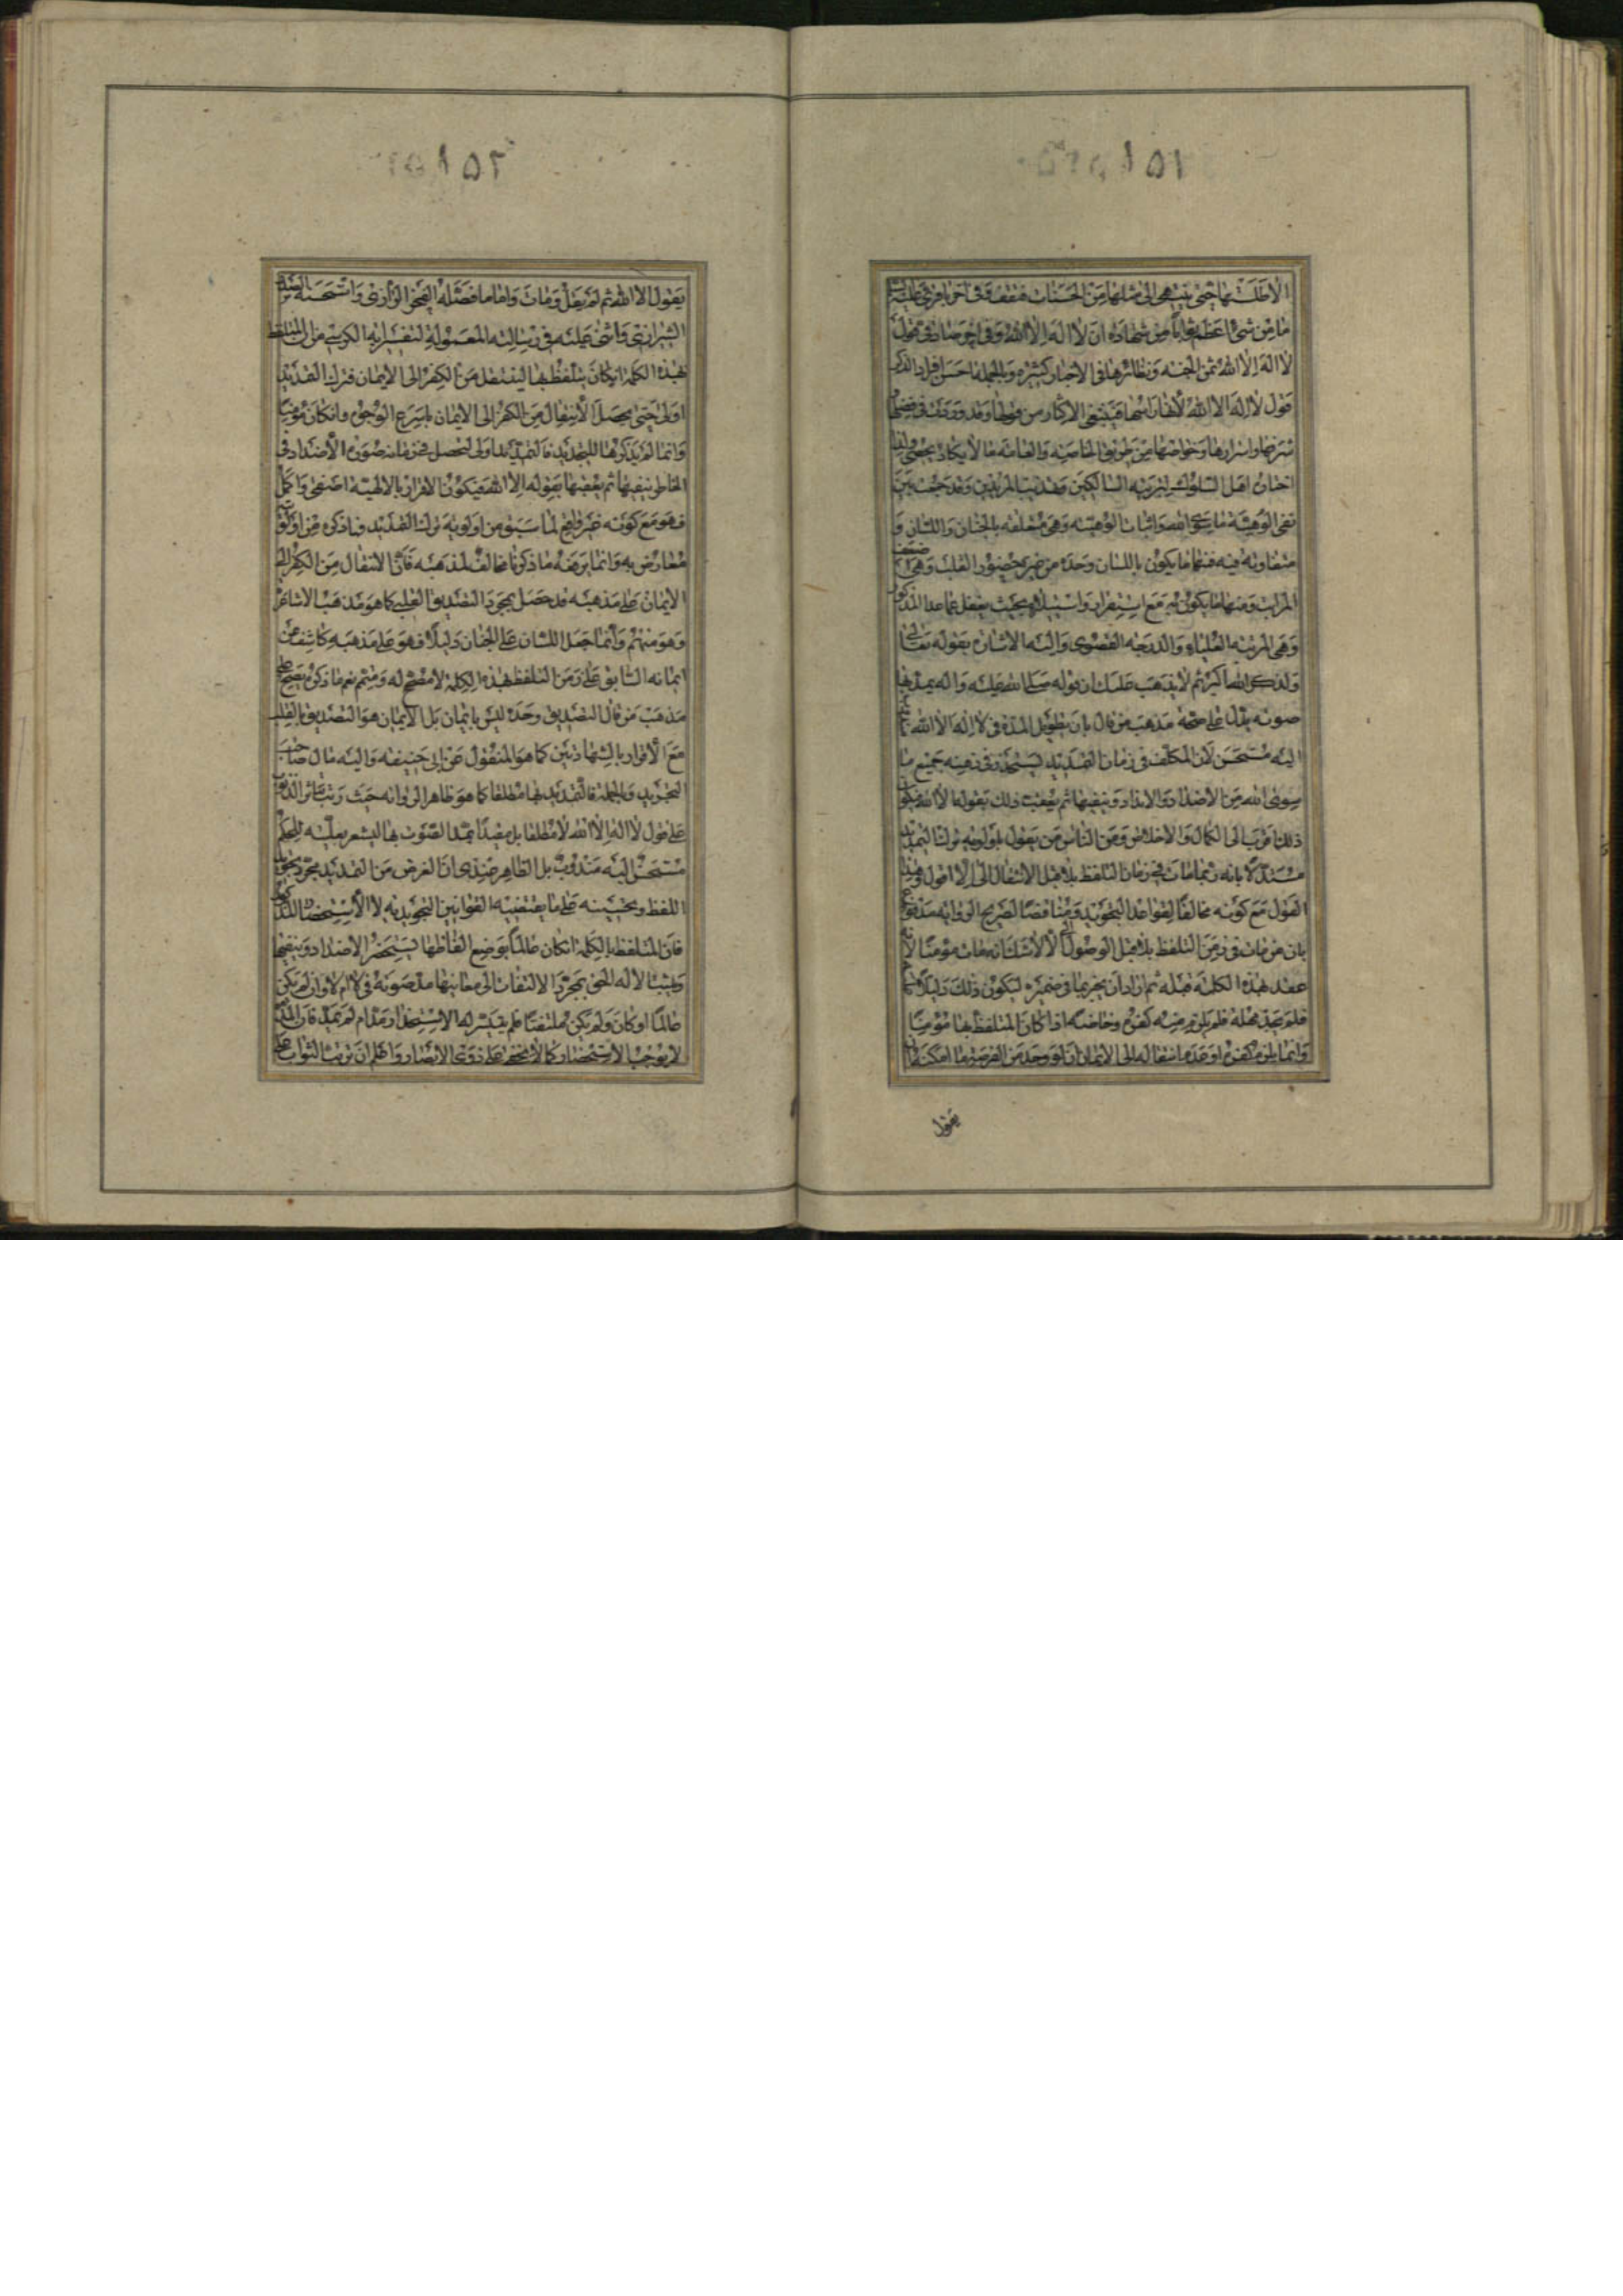 ١٥١
الا طلستها حتى ينتهى الى مثلها من الحسنات فتقف وفى اخر باقرى عليه
ما من شئ اعظم ثوابا من شهادة ان لا اله الا الله وفى اخر صادقى قول
لا اله الا الله ثمن الجنة ونظائرها فى الاخبار كثيرة وبالجملة احسن افراد الذكر
قول لا اله الا الله لانها راسها فينبغى الاكثار من قولها وقد وردت فى فضلها
شرفها واسرارها وخواصها من طريقى الخاصة والعامة ما لا يكاد يحصى ولذا
اختار اهل السلوك لتربية السالكين وتهذيب المريدين وقد جمعت بين
نفى الوهية ما سوى الله واثبات الوهيته وهى متعلقة بالجنان واللسان و
متفاوتة فيه فمنها ما يكون باللسان وحده من غير حضور القلب وهى اضعف
المراتب ومنها ما يكون فيه مع استقرار واستيلاء بحيث يغفل عما عدا المذكور
وهى المرتبة العلياء والدرجة القصوى واليه الاشارة بقوله تعالى
ولذكر الله اكبر ثم لا يذهب عليك ان قوله صلى الله عليه واله يمد بها
صوته يدل على صحة مذهب من قال بان تطويل المدة فى لا اله الا الله
اليه مستحسن لان المكلف فى زمان التمديد يستحضر فى ذهنه جميع ما
سوى الله من الاضداد والانداد وينفيها ثم يعقب ذلك بقوله الا الله فيكون
ذلك اقرب الى الكمال والاخلاص ومن الناس من يقول باولوية ترك التمديد
مستدلا بانه ربما مات فى زمان التلفظ بلا قبل الانتقال الى الا اقول وهذا
القول مع كونه مخالفا لقواعد التجويد ومناقضا لصريح الرواية مدفوع
بان من مات فى زمن التلفظ بلا قبل الوصول الى الا لا شك انه مات مؤمنا لانه
عقد بهذه الكلمة قبله ثم اراد ان يخبر بما فى ضميره ليكون ذلك دليلا
فلم يجد مهلة فلم يلزم منه كفره وخاصة اذا كان المتلفظ بها مؤمنا
وانما يلزم كفره او عدم انتقاله الى الايمان ان لو وجد من الفرصة ما امكنه ان
يقول
١٥٢
يقول الا الله ثم لم يقل ومات واما ما فصله الفخر الرازى واستحسنه الصدر
الشيرازى واثنى عليه فى رسالته المعمولة لتفسير اية الكرسى من ان المتلفظ
بهذه الكلمة ان كان يتلفظ بها لينتقل من الكفر الى الايمان فترك التمديد
اولى حتى يحصل الانتقال من الكفر الى الايمان باسرع الوجوه وان كان مؤمنا
وانما لم يذكرها للتجديد فالتمديد اولى لتحصل فى زمانه صورة الاضداد فى
الخاطر ينفيها ثم يعقبها بقوله الا الله فيكون الاقرار بالالهية اصفى واكمل
فهو مع كونه غير دافع لما سبق من اولوية ترك التمديد فما ذكره من اولويته
معارض به وانما يرفعه ما ذكرنا مخالف لمذهبه فان الانتقال من الكفر الى
الايمان على مذهبه قد حصل بمجرد التصديق القلبى كما هو مذهب الاشاعرة
وهو منهم وانما جعل اللسان على الجنان دليلا فهو على مذهبه كاشف عن
ايمانه السابق على زمن التلفظ بهذه الكلمة لا مصحح له ومتمم نعم ما ذكره يصح على
مذهب من قال التصديق وحده ليس بايمان بل الايمان هو التصديق بالقلب
مع الاقرار بالشهادتين كما هو المنقول عن ابى حنيفة واليه مال صاحب
التجريد وبالجملة فالتمديد بها مطلقا كما هو ظاهر الرواية حيث رتب تناثر الذنوب
على قول لا اله الا الله لا مطلقا بل مقيدا بمد الصوت بها المشعر بعليته للحكم
مستحسن اليه مندوب بل الظاهر عندى ان الغرض من التمديد مجرد تجويد
اللفظ وتحسينه على ما يقتضيه القوانين التجويدية لا الاستحضار المذكور
فان المتلفظ بالكلمة ان كان عالما بوضع الفاظها يستحضر الاضداد وينفيها
ويثبت الاله الحق بمجرد الالتفات الى معانيها مد صوته فى لا ام لا وان لم يكن
عالما او كان ولم يكن ملتفتا فلم يتيسر له الاستحضار مد ام لم يمد فان المد
لا يوجب الاستحضار كما لا يخفى على ذوى الابصار واعلم ان ترتب الثواب على